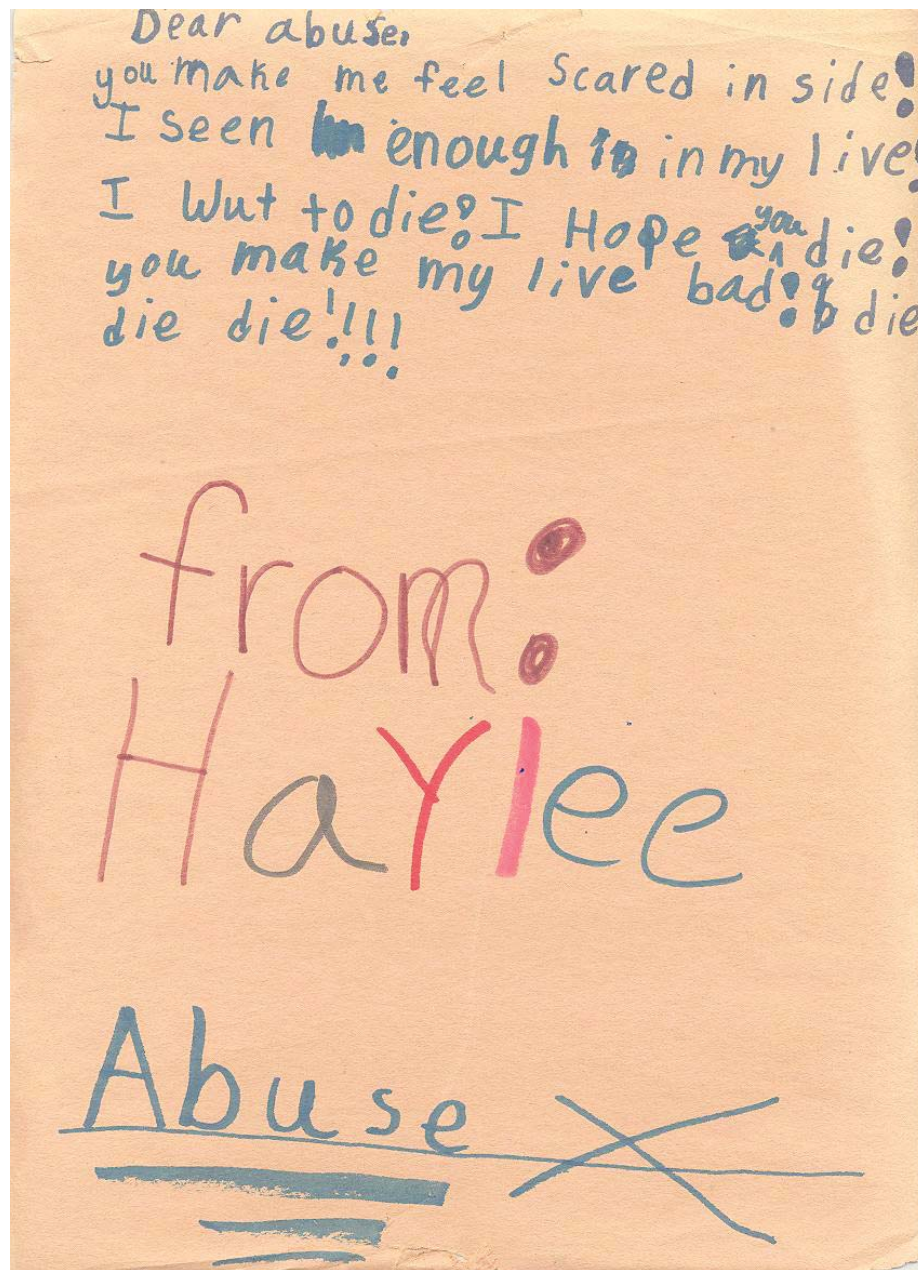 Dear abuse,
you make me feel scared in side!
I seen enough in my live!
I Wut to die! I Hope you die!
you make my live bad! die
die die!!!!
from:
Haylee
Abuse X